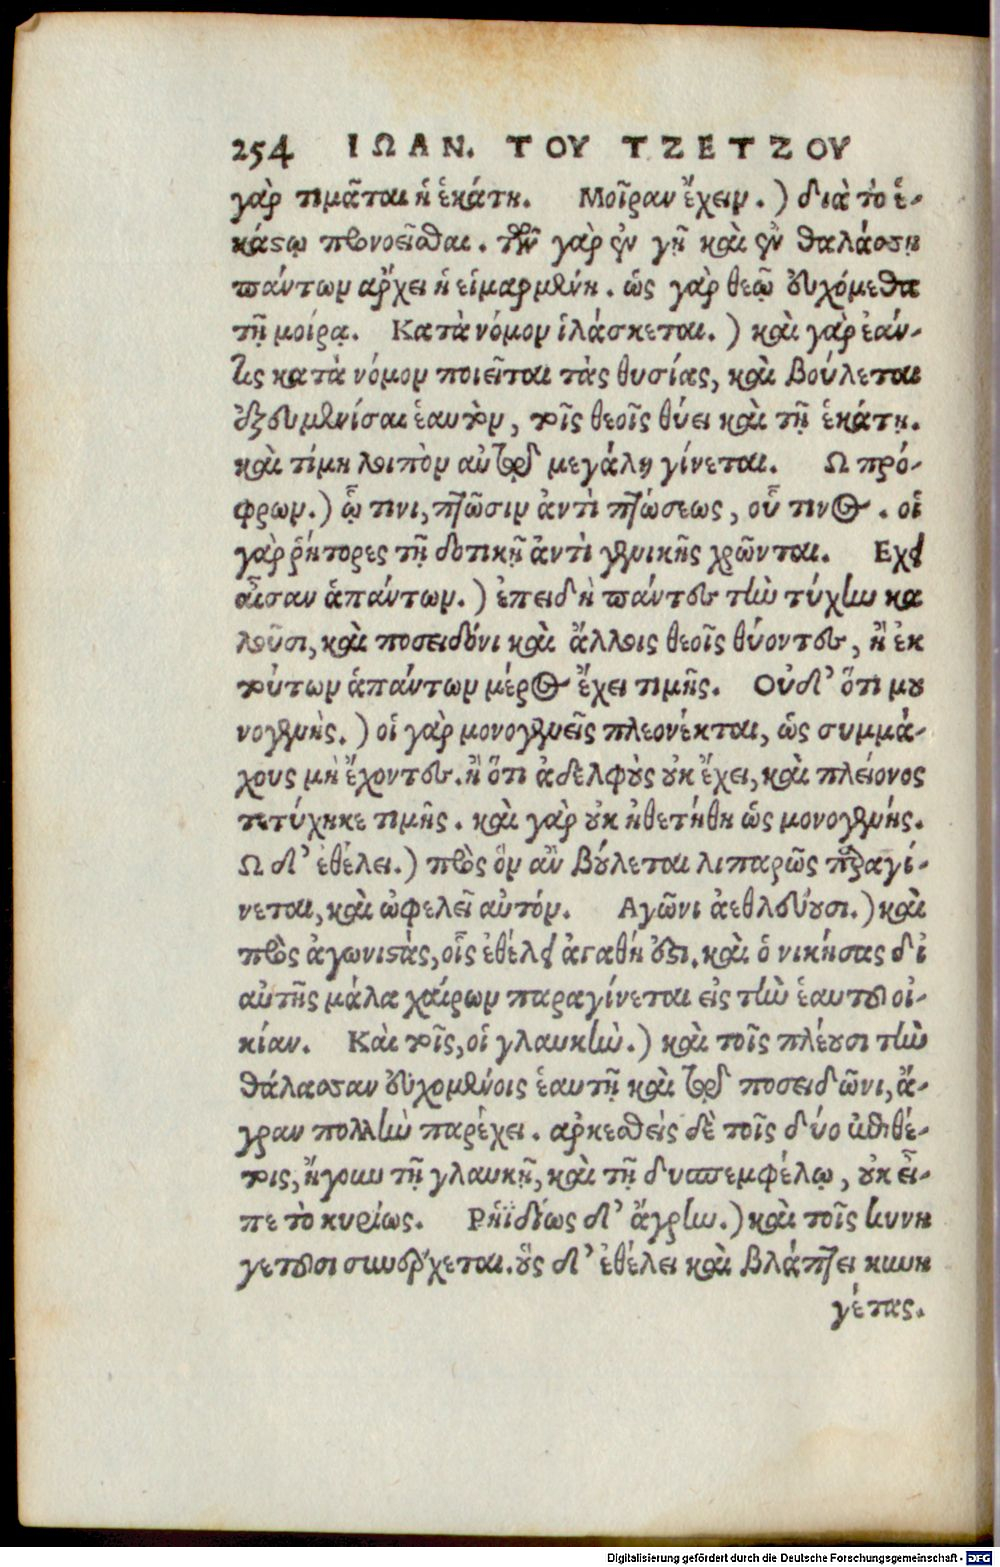 254 ΙΩΑΝ. ΤΟΥ ΤΖΕΤΖΟΥ
γὰρ τιμᾶται ἡ ἑκάτη. Μοῖραν ἔχειν.) διὰ τὸ ἑ-
κάστῳ προνοεῖσθαι. τῶν γὰρ ἐν γῇ καὶ ἐν θαλάσσῃ
πάντων ἄρχει ἡ εἱμαρμένη. ὡς γὰρ θεῷ εὐχόμεθα
τῇ μοίρᾳ. Κατὰ νόμον ἱλάσκεται.) καὶ γὰρ ἐάν-
τις κατὰ νόμον ποιεῖται τὰς θυσίας, καὶ βούλεται
ἐξευμενίσαι ἑαυτὸν, τοῖς θεοῖς θύει καὶ τῇ ἑκάτῃ.
καὶ τίμη λοιπὸν αὐτῷ μεγάλη γίνεται. Ω πρό-
φρων.) ᾧ τινι, πτῶσιν ἀντὶ πτώσεως, οὗ τινος. οἱ
γὰρ ῥήτορες τῇ δοτικῇ ἀντὶ γενικῆς χρῶνται. Εχει
αἶσαν ἁπάντων.) ἐπειδὴ πάντες τὴν τύχην κα
λοῦσι, καὶ ποσειδόνι καὶ ἄλλοις θεοῖς θύοντες, ἢ ἐκ
τούτων ἁπάντων μέρος ἔχει τιμῆς. Οὐδ' ὅτι μου
νογενὴς.) οἱ γὰρ μονογενεῖς πλεονέκται, ὡς συμμά-
χους μὴ ἔχοντες. ἢ ὅτι ἀδελφοὺς οὐκ ἔχει, καὶ πλείονος
τετύχηκε τιμῆς. καὶ γὰρ οὐκ ἠθετήθη ὡς μονογενής.
Ω δ' ἐθέλει.) πρὸς ὃν ἂν βούλεται λιπαρῶς παραγί-
νεται, καὶ ὠφελεῖ αὐτόν. Αγῶνι ἀεθλεύουσι.) καὶ
πρὸς ἀγωνιστὰς, οἷς ἐθέλει ἀγαθή ἐστι. καὶ ὁ νικήσας δι
αὐτῆς μάλα χαίρων παραγίνεται εἰς τὴν ἑαυτοῦ οἰ-
κίαν. Καὶ τοῖς, οἱ γλαυκὴν.) καὶ τοῖς πλέουσι τὴν
θάλασσαν εὐχομένοις ἑαυτῇ καὶ τῷ ποσειδῶνι, ἄ-
γραν πολλὴν παρέχει. ἀρκεσθεὶς δὲ τοῖς δύο ἐπιθέ-
τοις, ἤγουν τῇ γλαυκῇ, καὶ τῇ δυσπεμφέλῳ, οὐκ εἶ-
πε τὸ κυρίως. Ρηϊδίως δ' ἄγρην.) καὶ τοῖς κυνη
γετοῦσι συνέρχεται. οὓς δ' ἐθέλει καὶ βλάπτει κυνη
γέτας.
Digitalisierung gefördert durch die Deutsche Forschungsgemeinschaft - DFG